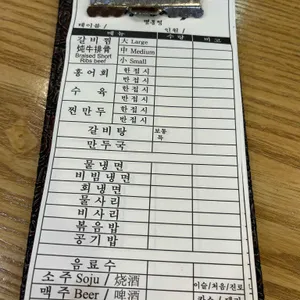 명동점
테이블 / 인원 /
메뉴 수량 비고
갈비찜 大 Large
炖牛排骨 中 Medium
Braised Short Ribs beef 小 Small
홍어회 한접시
반접시
수육 한접시
반접시
찐만두 한접시
반접시
갈비탕 보통
특
만두국
물냉면
비빔냉면
회냉면
물사리
비사리
볶음밥
공기밥
음료수
소주 Soju / 烧酒 이슬/처음/진로
맥주 Beer / 啤酒 카스/테라